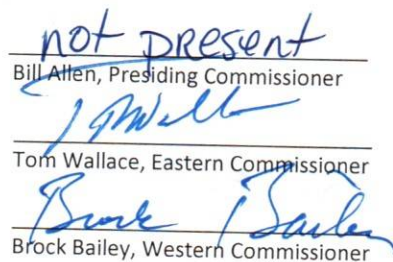 not present
Bill Allen, Presiding Commissioner
Tom Wallace, Eastern Commissioner
Brock Bailey
Brock Bailey, Western Commissioner